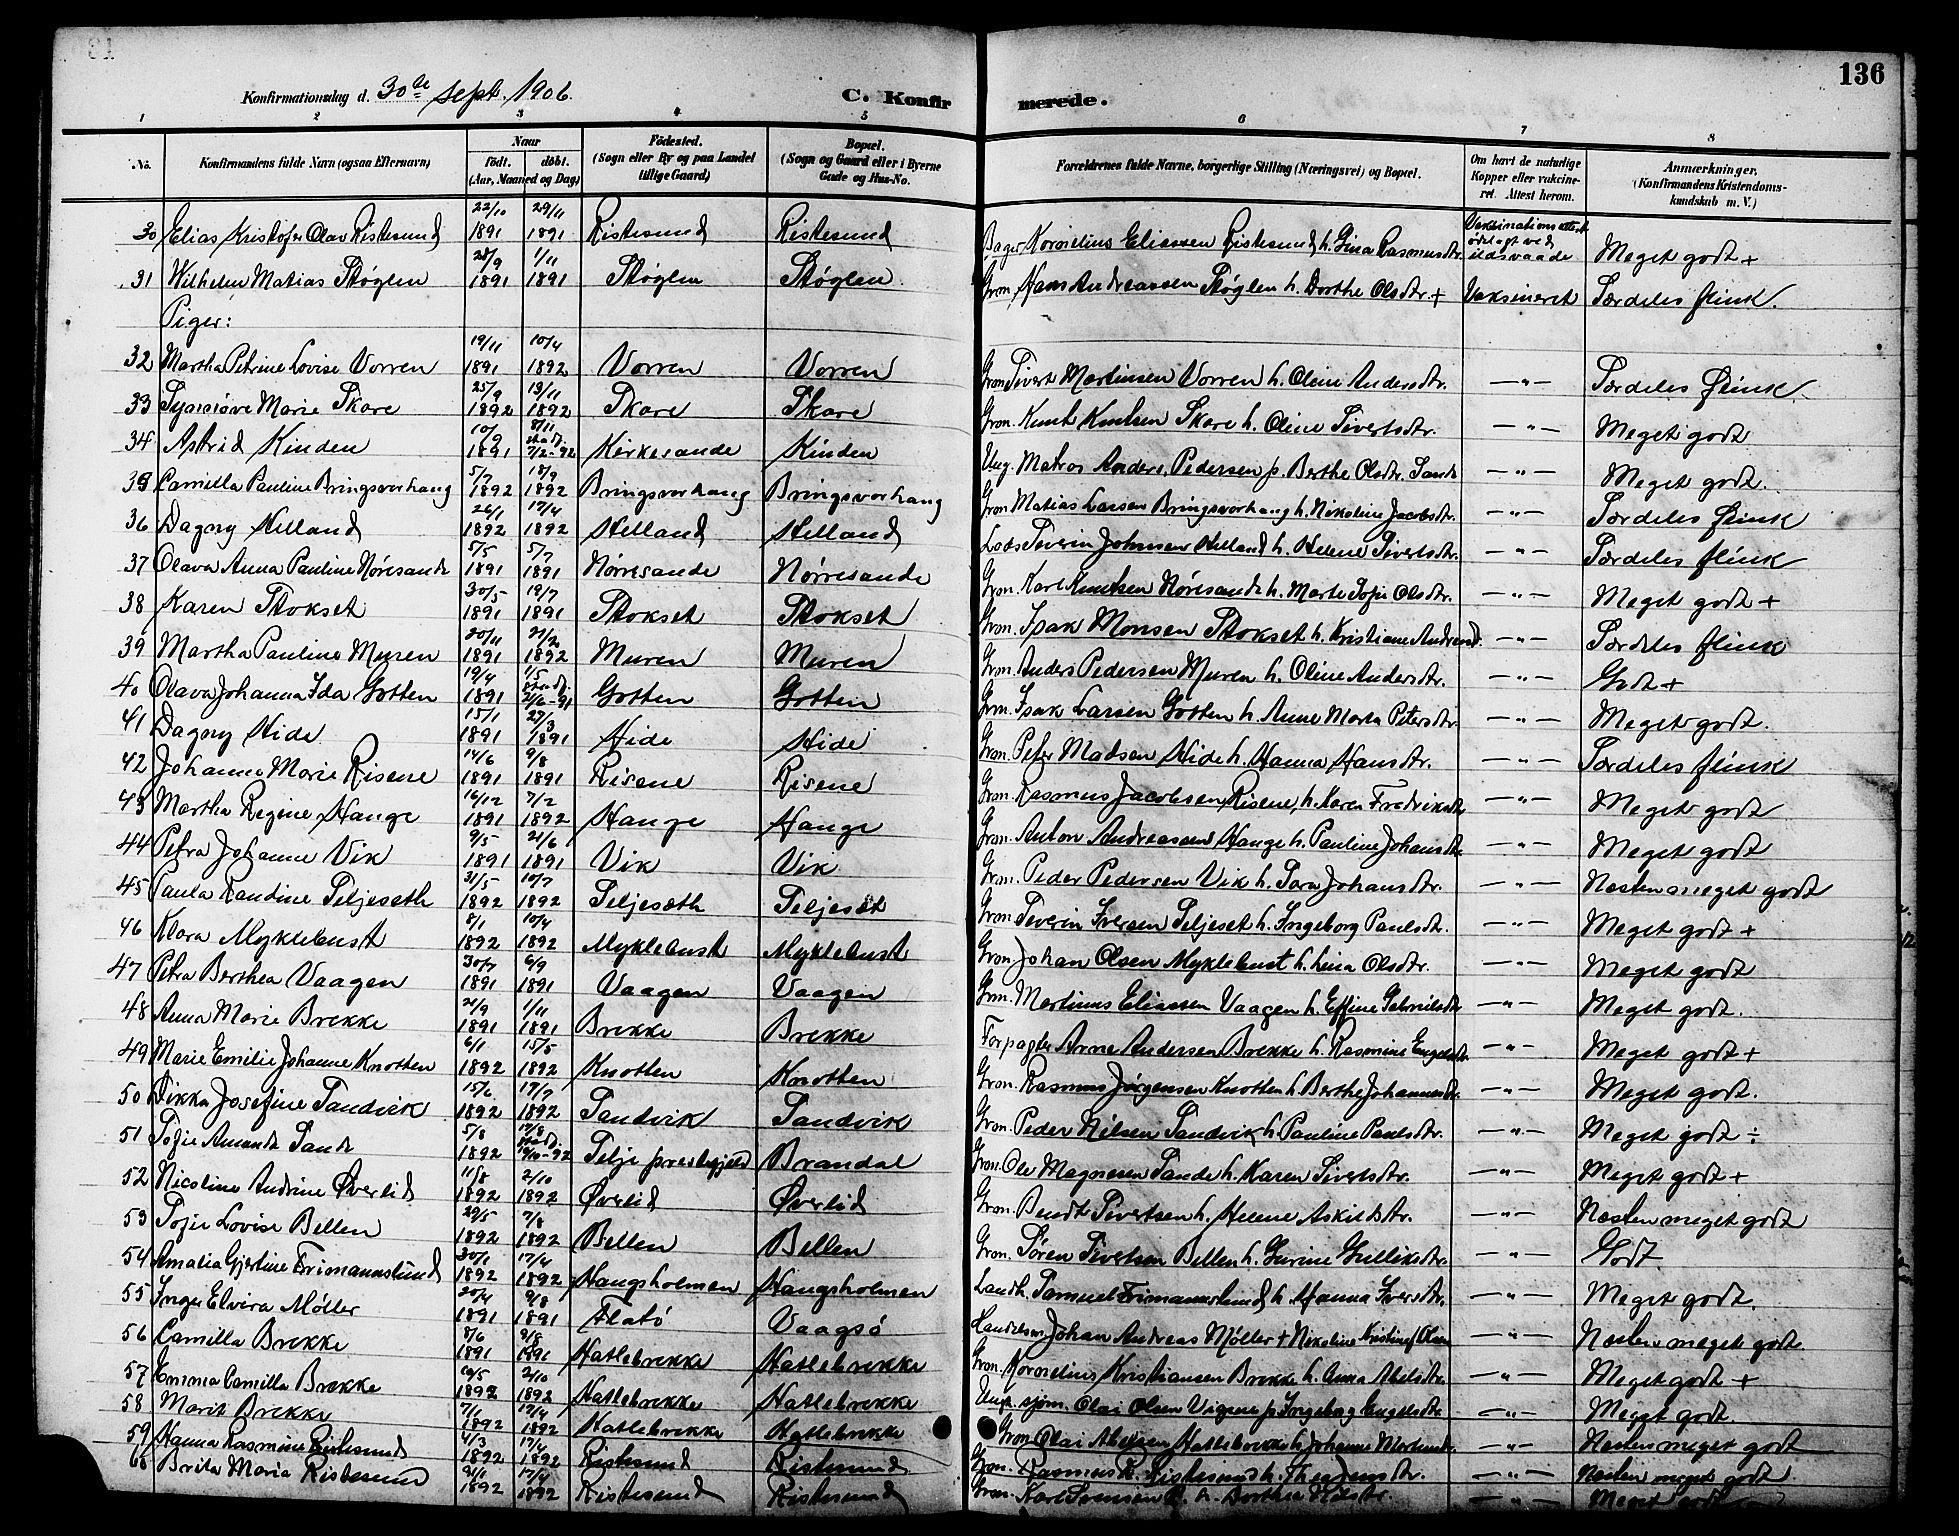 136
Konfirmationsdag d. 30de sept. 1906. C. Konfirmerede.
1 2 3 4 5 6 7 8
No. Konfirmandens fulde Navn (ogsaa Efternavn) Naar födt. döbt. (Aar, Maaned og Dag) Födested. (Sogn eller By og paa Landet tillige Gaard) Bopæl. (Sogn og Gaard eller i Byerne Gade og Hus-No. Forældrenes fulde Navne, borgerlige Stilling (Næringsvei) og Bopæl. Om havt de naturlige Kopper eller vakcineret. Attest herom. Anmærkninger. (Konfirmandens Kristendomskundskab m. V.)
30 Elias Kristofer Olav Ristesund 22/10 1891 29/11 1891 Ristesund Ristesund Bager Kornelius Eliassen Ristesund h. Gina Rasmusdtr. Vaksinationsattest ødelagt ved ildsvaade Meget godt +
31 Wilhelm Matias Støylen 28/9 1891 1/11 1891 Støylen Støylen Grm. Hans Andreassen Støylen h. Dorthe Olsdtr. + Vaksineret Særdeles flink.
Piger:
32 Martha Petrine Lovise Vorren 19/11 1891 10/4 1892 Vorren Vorren Grm. Sivert Martinsen Vorren h. Oline Andersdtr. —"— Særdeles flink.
33 Synnøve Marie Skare 25/9 1892 13/11 1892 Skare Skare Grm. Knut Knutsen Skare h. Oline Sivertsdtr. —"— Meget godt
34 Astrid Kinden 10/9 1891 8/11 stadf. 7/2-92 Kirkesande Kinden Ung. Matros Anders Pedersen p. Berthe Olsdtr. Sande —"— Meget godt.
35 Camilla Pauline Bringsvorhaug 5/7 1892 18/9 1892 Bringsvorhaug Bringsvorhaug Grm. Matias Larsen Bringsvorhaug h. Nikoline Jacobsdtr. —"— Særdeles flink
36 Dagny Helland 26/1 1892 17/4 1892 Helland Helland Lods Severin Johnsen Helland h. Helene Sivertsdtr. —"— Særdeles flink
37 Olava Anna Pauline Nøresande 5/5 1891 5/7 1891 Nørresande Nørresande Grm. Karl Knutsen Nøresande h. Marte Sofie Olsdtr. —"— Meget godt +
38 Karen Stokset 30/5 1891 19/7 1891 Stokset Stokset Grm. Isak Monsen Stokset h. Kristiane Andreasd. —"— Særdeles flink
39 Martha Pauline Muren 20/11 1891 21/2 1892 Muren Muren Grm. Anders Pedersen Muren h. Oline Andersdtr. —"— Godt +
40 Olava Johanna Ida Gotten 19/4 1891 1/5 stadf. 21/6-91 Gotten Gotten Grm. Isak Larsen Gotten h. Anne Marta Petersdtr. —"— Meget godt.
41 Dagny Hide 15/1 1891 27/3 1891 Hide Hide Grm. Peter Madsen Hide h. Hanna Hansdtr. —"— Særdeles flink
42 Johanne Marie Risene 14/6 1891 9/8 1891 Risene Risene Grm. Rasmus Jacobsen Risene h. Karen Fredriksdtr. —"— Meget godt
43 Martha Regine Hauge 16/12 1891 7/2 1892 Hauge Hauge Grm. Anton Andreassen Hauge h. Pauline Johansdtr. —"— Meget godt
44 Petra Johanne Vik 9/5 1891 21/6 1891 Vik Vik Grm. Peder Pedersen Vik h. Sara Johansdtr. —"— Næsten meget godt
45 Paula Randine Seljesæth 31/5 1892 10/7 1892 Seljesæth Seljesæt Grm. Severin Iversen Seljeset h. Ingeborg Paulsdtr. —"— Meget godt +
46 Klara Myklebust 8/1 1892 10/4 1892 Myklebust Myklebust Grm. Johan Olsen Myklebust h. Lina Olsdtr. —"— Meget godt
47 Petra Berthea Vaagen 30/7 1891 6/9 1891 Vaagen Vaagen Grm. Martinus Eliassen Vaagen h. Effine Gabrielsdtr. —"— Meget godt.
48 Anna Marie Brekke 21/9 1891 1/11 1891 Brekke Brekke Forpagter Arne Andersen Brekke h. Rasmine Engelsdtr. —"— Meget godt +
49 Marie Emilie Johanne Knotten 6/1 1892 15/5 1892 Knotten Knotten Grm. Rasmus Jørgensen Knotten h. Berthe Johannesdtr. —"— Meget godt.
50 Dikka Josefine Sandvik 15/6 1892 17/7 1892 Sandvik Sandvik Grm. Peder Nilsen Sandvik h. Pauline Paulsdtr. —"— Meget godt ÷
51 Sofie Amanda Sande 5/8 1892 17/8 stadf. 19/10-92 Selje prestegjeld Brandal Grm. Ole Magnesen Sande h. Karen Sivertsdtr. —"— Meget godt +
52 Nicoline Andrine Øverlid 11/8 1892 2/10 1892 Øverlid Øverlid Grm. Bendt Sivertsen h. Helene Askildsdtr. —"— Næsten meget godt
53 Sofie Lovise Bellen 29/5 1892 7/8 1892 Bellen Bellen Grm. Søren Sivertsen Bellen h. Gurine Gulliksdtr. —"— Godt
54 Amalia Gjertine Frimannslund 30/1 1892 17/4 1892 Haugsholmen Haugsholmen Landh. Samuel Frimannslund h. Hanna Iversdtr. —"— Meget godt.
55 Inga Elvira Møller 20/4 1891 9/8 1891 Flatö Vaagsö Handelsm. Johan Andreas Møller + Nikoline Kristine f. Olsen —"— Næsten meget godt.
56 Camilla Brekke 8/6 1891 9/8 1891 Hatlebrekke Hatlebrekke Grm. Kornelius Kristiansen Brekke h. Anna Abelsdtr. —"— Meget godt +
57 Emma Camilla Brekke 10/5 1892 2/10 1892 Hatlebrekke Hatlebrekke Ungk. sjøm. Olai Olsen Vigene p. Ingeborg Engelsdtr. —"— Meget godt.
58 Marit Brekke 7/1 1892 17/4 1892 Hatlebrekke Hatlebrekke Grm. Olai Abelsen Hatlebrekke h. Johanne Mortensdtr. —"— Næsten meget godt
59 Hanna Rasmine Ristesund 4/3 1892 17/4 1892 Ristesund Ristesund Grm. Rasmus R. Ristesund h. Thea Jensdtr. —"— Næsten meget godt
60 Brita Maria Ristesund 21/1 1892 17/4 1892 Ristesund Ristesund Grm. Karl Svensen R. h. Dorthea Nilsdtr. —"— Meget godt